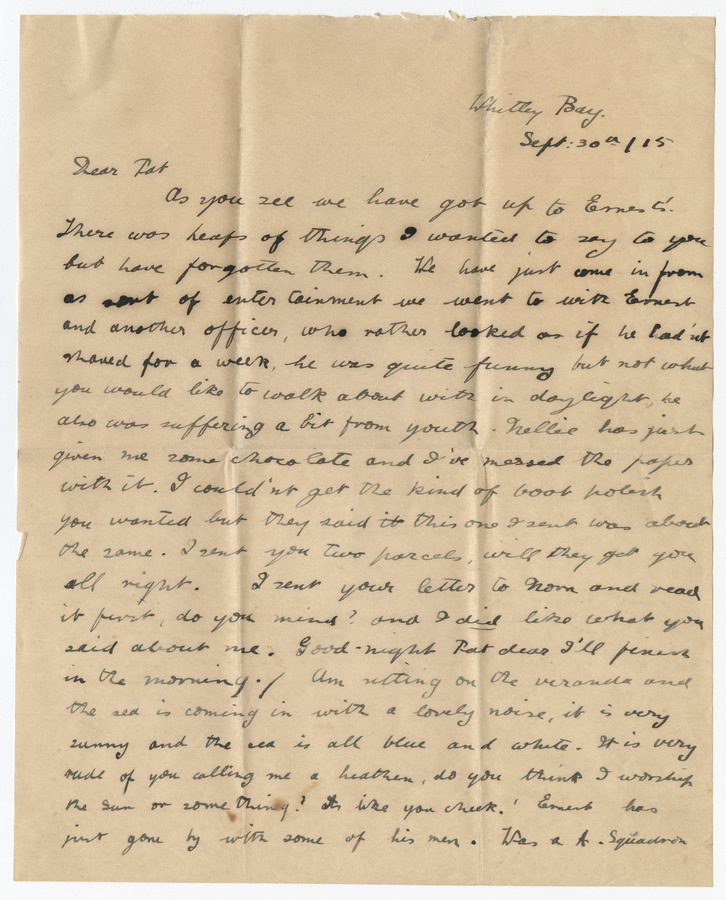 Whitley Bay.
Sept: 30th / 15
Dear Pat
As you see we have got up to Ernest's.
There was heaps of things I wanted to say to you
but have forgotten them. We have just come in from
as sort of entertainment we went to with Ernest
and another officer, who rather looked as if he had'nt
shaved for a week, he was quite funny but not what
you would like to walk about with in daylight, he
also was suffering a bit from youth. Nellie has just
given me some chocolate and I've messed the paper
with it. I could'nt get the kind of boot polish
you wanted but they said it this one I sent was about
the same. I sent you two parcels, will they get you
all right. I sent your letter to Nora and read
it first, do you mind? and I did like what you
said about me. Good-night Pat dear I'll finish
in the morning./ Am sitting on the veranda and
the sea is coming in with a lovely noise, it is very
sunny and the sea is all blue and white. It is very
rude of you calling me a heathen, do you think I worship
the sun or something? Its like you cheek.! Ernest has
just gone by with some of his men. Was a A. Squadron